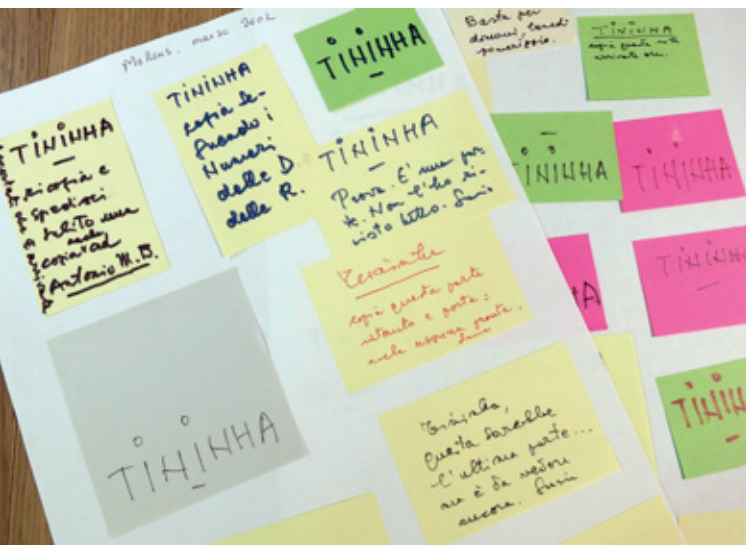 marzo 2002
TININHA
ricopia e
spedisci
subito una
copia ad
Antonio M. B.
TININHA
copia se-
guendo i
Numeri
delle D.
delle R.
TININHA
TININHA
Prova. E' una par-
te. Non l'ho ri-
visto tutto.
copia questa parte
intanto e porta:
mela appena pronta.
TININHA
Tininha,
questa sarebbe
l'ultima parte...
ma è da vedere
ancora.
Basta per
domani,
pomeriggio.
TININHA
copia questa
TININHA
TININHA
TININHA
TININHA